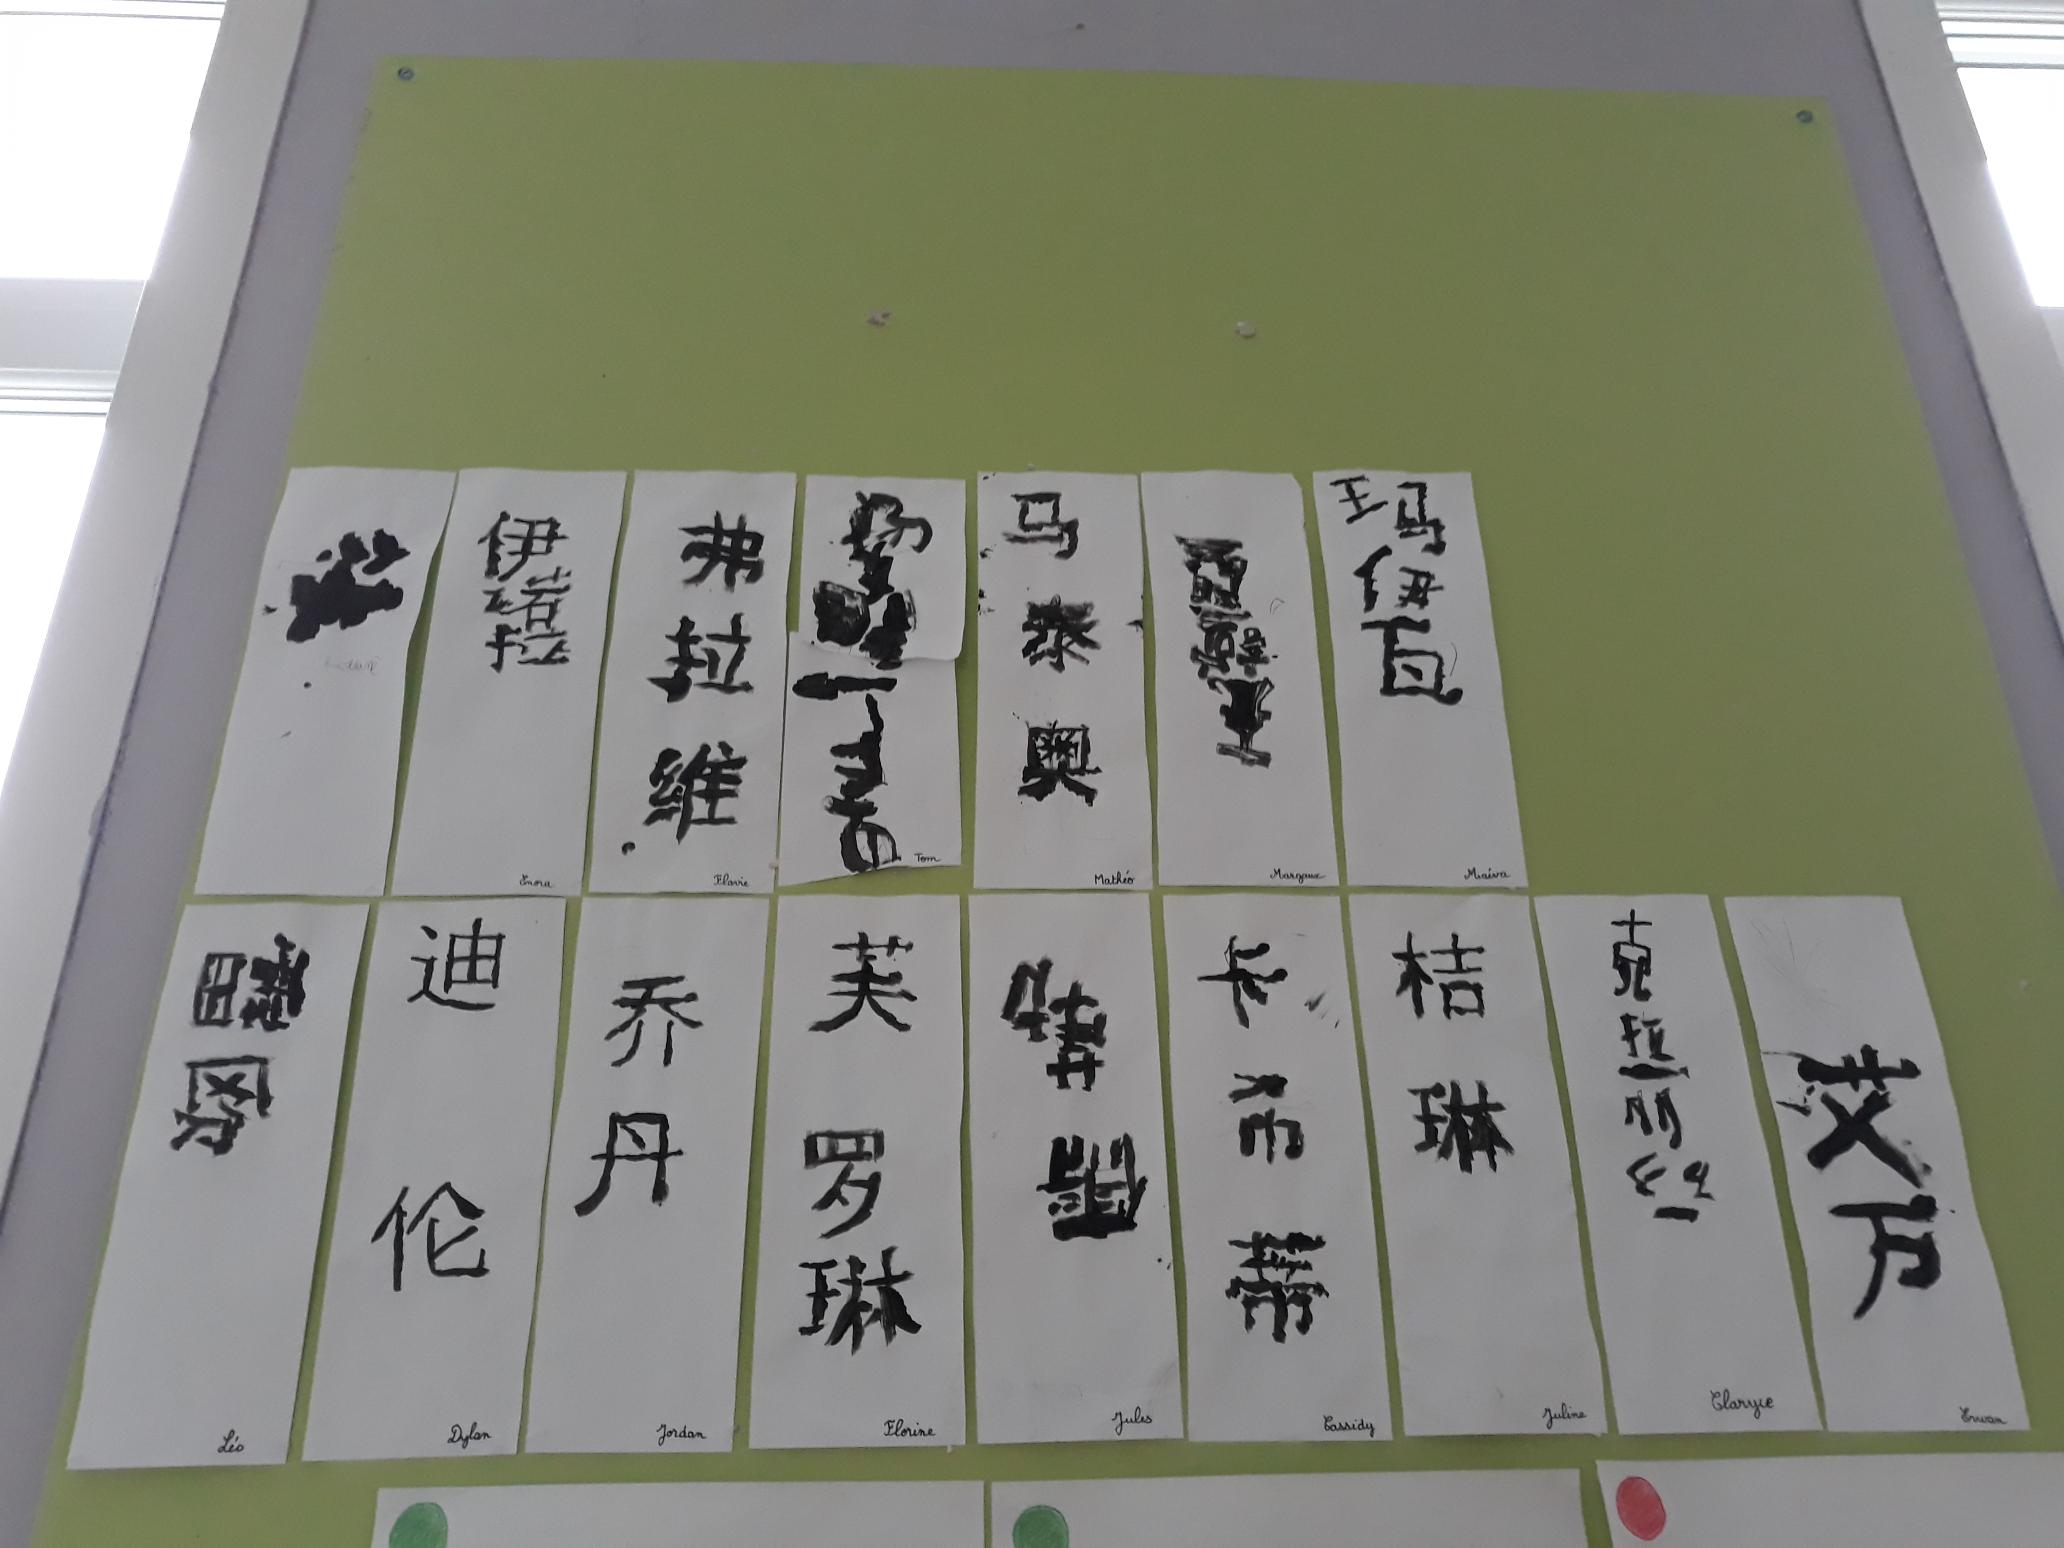 伊
诺
拉
Enora
弗
拉
维
Flavie
Tom
马
泰
奥
Mathéo
Margaux
玛
伊
瓦
Maéva
Léo
迪
伦
Dylan
乔
丹
Jordan
芙
罗
琳
Florine
Jules
卡
希
蒂
Cassidy
桔
琳
Juline
克
拉
丽
丝
Claryce
艾
万
Erwan